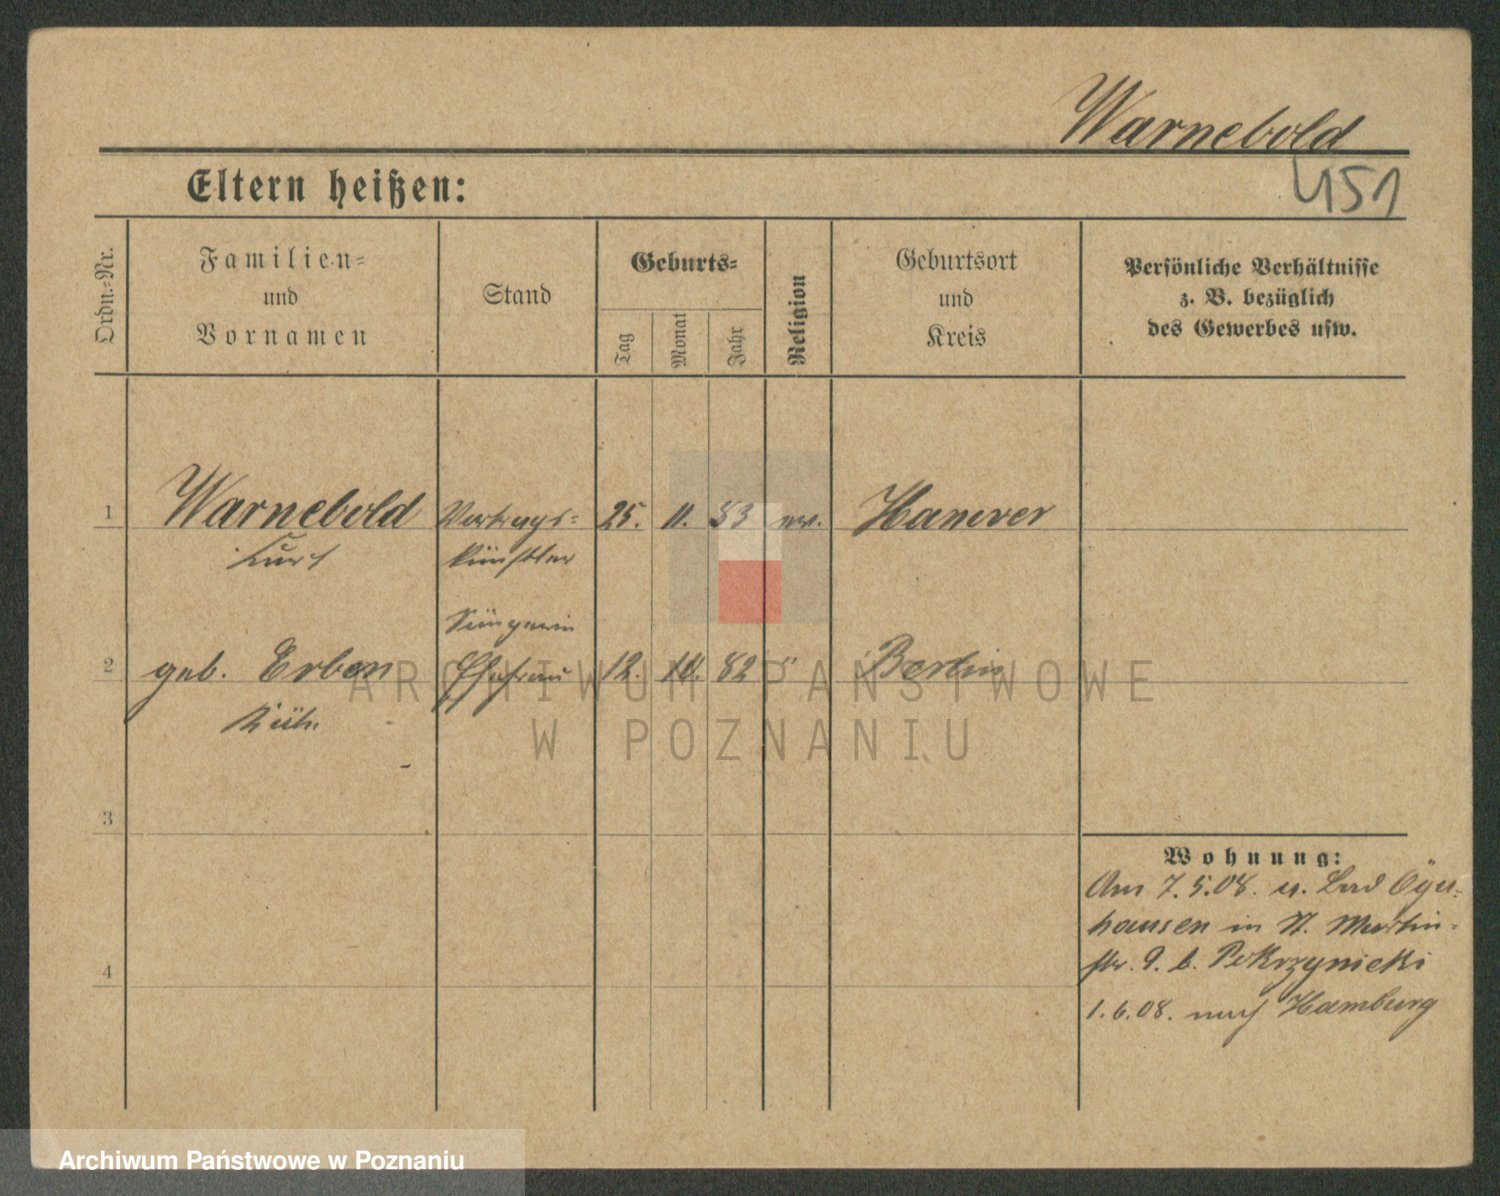 Warnebold
451
Eltern heißen:
Ordn.-Nr.
Familien-
und
Vornamen
Stand
Geburts-
Tag
Monat
Jahr
Religion
Geburtsort
und
Kreis
Persönliche Verhältnisse
z. B. bezüglich
des Gewerbes usw.
1 Warnebold Vortrags- 25. 11. 53 Hanover
Kurt künstler
Sängerin
2 geb. Erben Ehefrau 12. 10. 82 " Berlin
3
Wohnung:
Am 7.5.08. Bad Öyn-
hausen in St. Martin-
str. 9. b. Pokrzynicki
4
1.6.08. nach Hamburg
ARCHIWUM PAŃSTWOWE
W POZNANIU
Archiwum Państwowe w Poznaniu